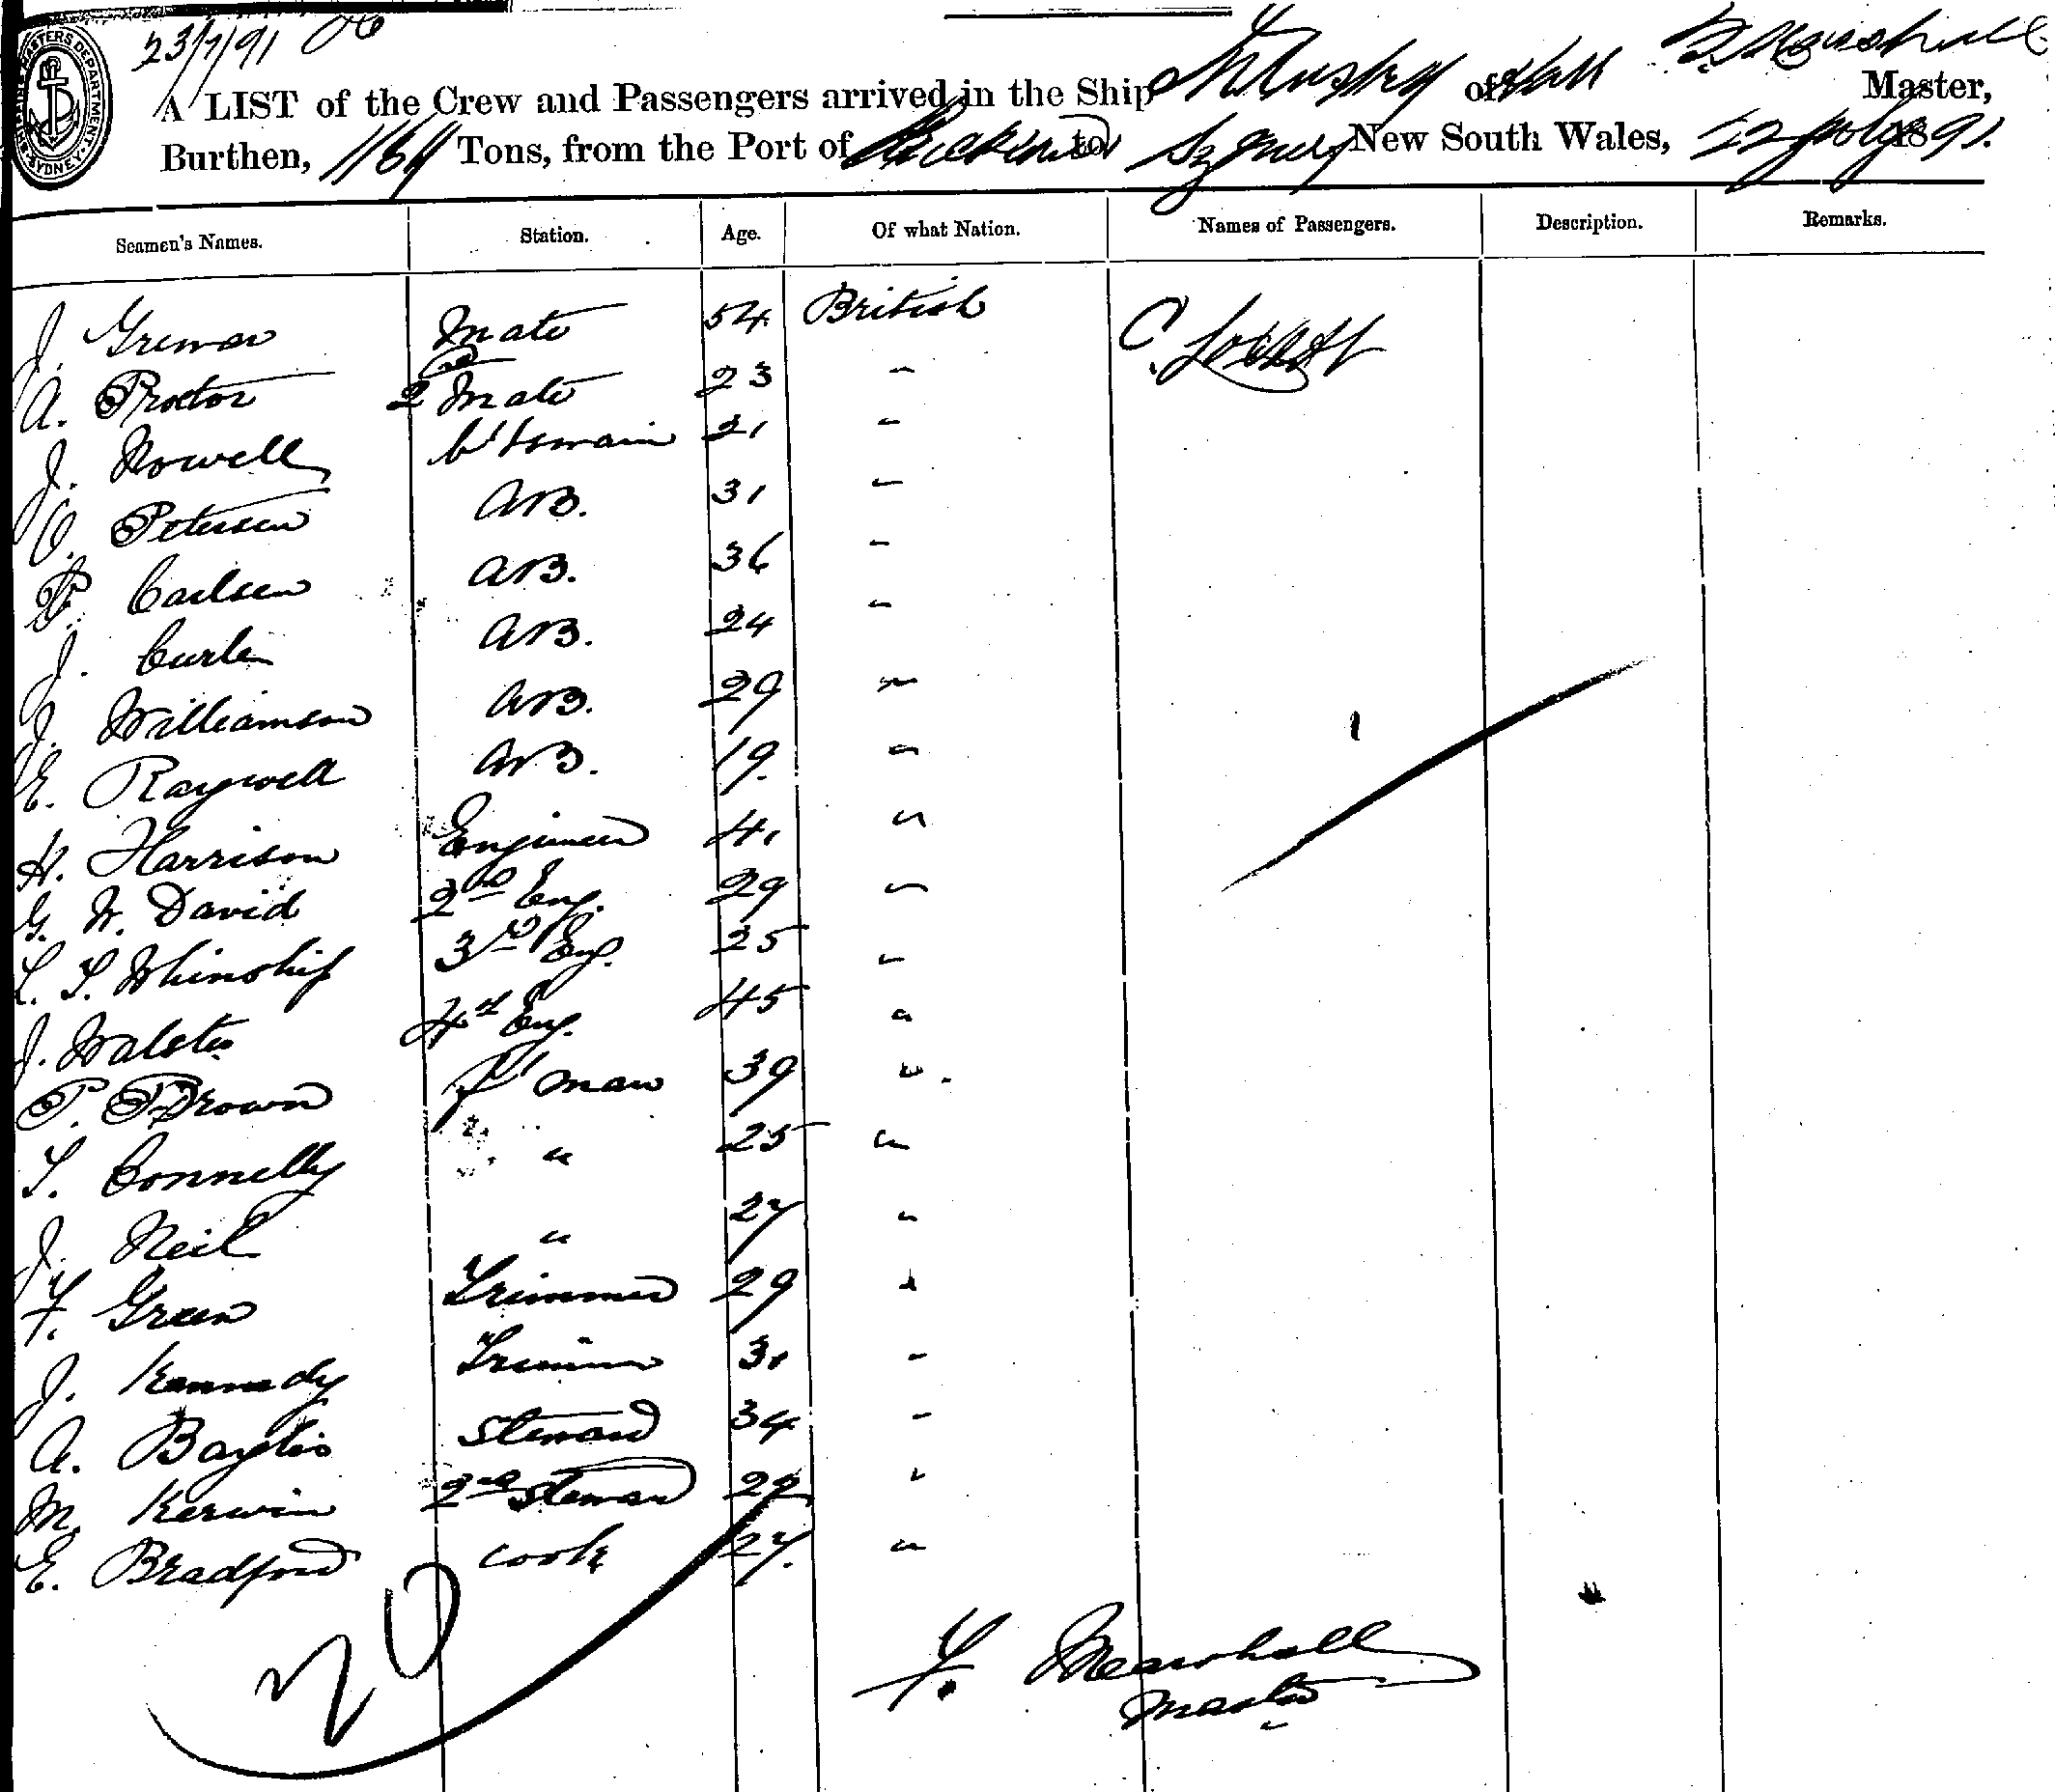 23/7/91
SHIPPING MASTERS DEPARTMENT SYDNEY
A LIST of the Crew and Passengers arrived in the Ship of Hull F. Marshall Master,
Burthen, 1164 Tons, from the Port of to Sydney New South Wales, 22 July 1891.
Seamen's Names. Station. Age. Of what Nation. Names of Passengers. Description. Remarks.
J. Mate 54 British C.
A. Proctor 2 Mate 23 "
J. Rowell B'tswain 21 "
O. Petersen AB. 31 "
P. Carlsen AB. 36 "
J. AB. 24 "
J. Williamson AB. 29 "
E. Raywell AB. 19. "
H. Harrison Engineer 41 "
G. W. David 2nd Eng. 29 "
L. T. Whinship 3rd Eng. 25 "
J. 4th Eng. 45 "
P. Brown F'man 39 "
T. Connelly " 25 "
J. Neil " 27 "
F. Green Trimmer 29 "
J. Kennedy Trimmer 31 "
A. Baylis Steward 34 "
M. Kerwin 2nd Steward 29 "
E. Bradford Cook 27. "
20
1
F. Marshall
Master